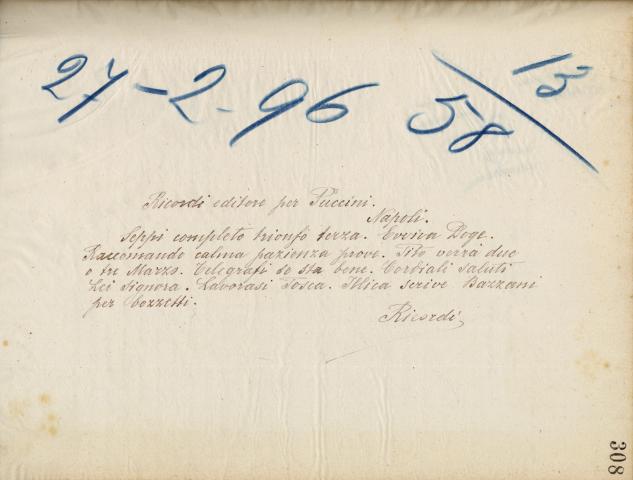 27-2-96 58/13
Ricordi editore per Puccini.
Napoli.
Seppi completo trionfo terza. Evviva Doge.
Raccomando calma pazienza prove. Tito verrà due
o tre Marzo. Telegrafi se sta bene. Cordiali saluti
Lei Signora. Lavorasi Tosca. Illica scrive Bazzani
per bozzetti.
Ricordi
308